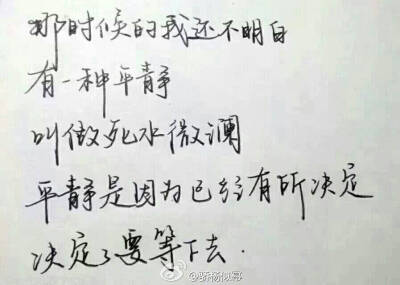 那时候的我还不明白
有一种平静
叫做死水微澜
平静是因为已经有所决定
决定了要等下去.
@骄杨似寡